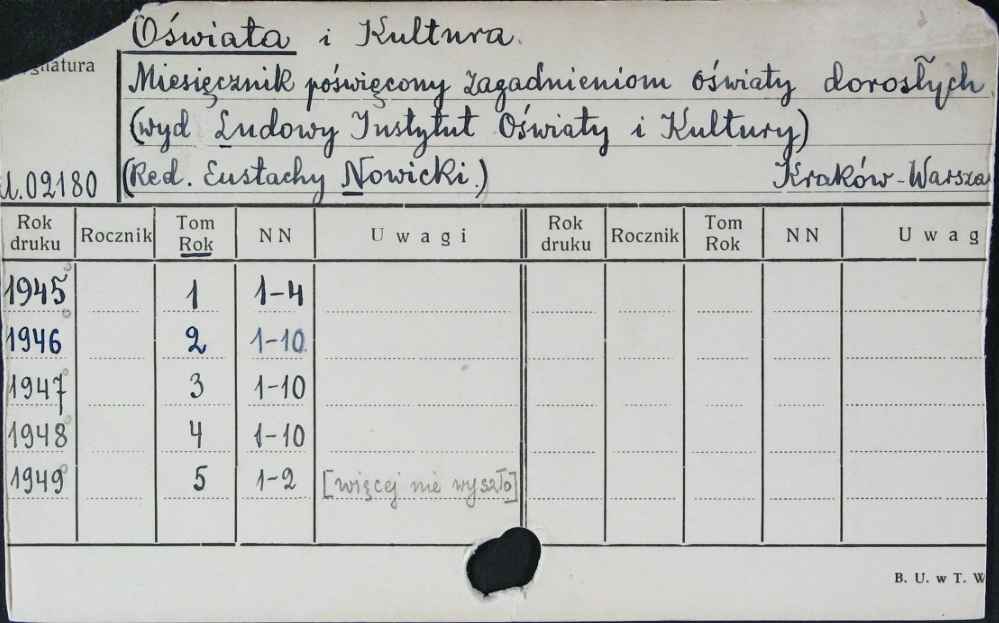 Oświata i Kultura.
Miesięcznik poświęcony zagadnieniom oświaty dorosłych
(wyd Ludowy Instytut Oświaty i Kultury)
(Red. Eustachy Nowicki.) Kraków-Warsza
gnatura
02180
Rok druku Rocznik Tom Rok NN Uwagi Rok druku Rocznik Tom Rok NN Uwag
1945 1 1-4
1946 2 1-10
1947 3 1-10
1948 4 1-10
1949 5 1-2 [więcej nie wyszło]
B. U. w T. W